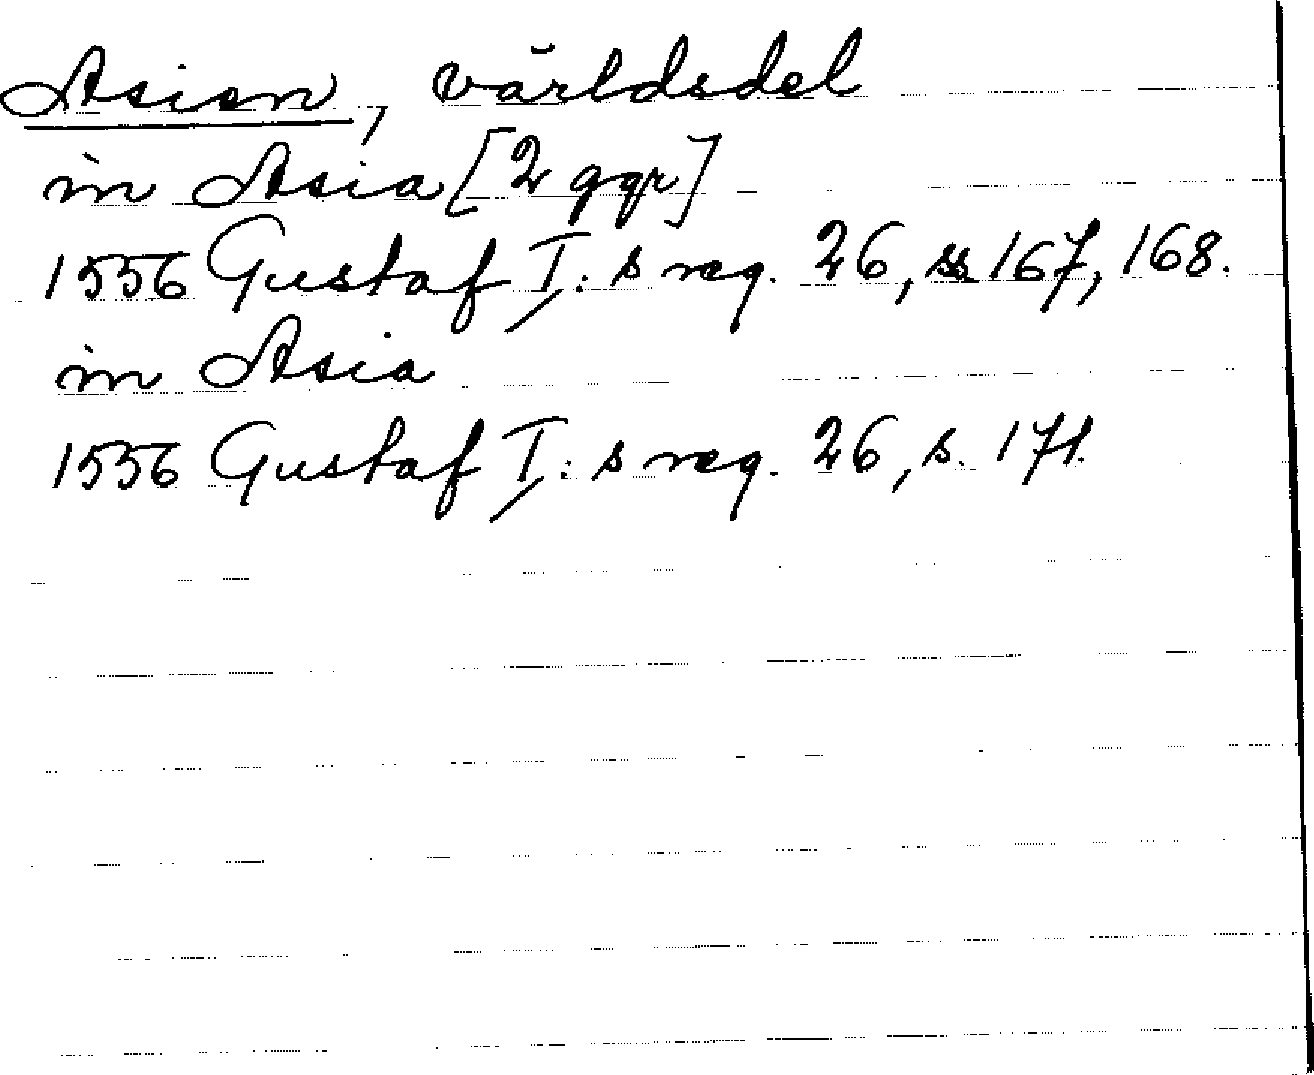 Asien, världsdel
in Asia [2 ggr]
1556 Gustaf I: s reg. 26, ss 167, 168.
in Asia
1556 Gustaf I: s reg. 26, s. 171.